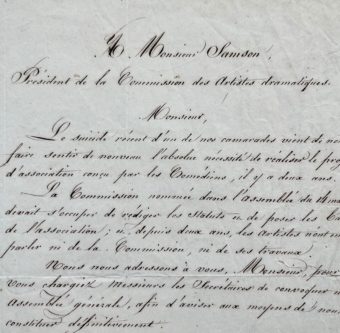 A Monsieur Samson,
Président de la Commission des Artistes dramatiques.
Monsieur,
Le suicide récent d'un de nos camarades vient de
faire sentir de nouveau l'absolue nécessité de réaliser le proj
d'association conçu par les Comédiens, il y a deux ans.
La Commission nommée dans l'assemblée du
devait s'occuper de rédiger les Statuts et de poser les
de l'association; et, depuis deux ans, les Artistes n'ont
parler ni de la Commission, ni de ses travaux.
Nous nous adressons à vous, Monsieur, pour
vous chargiez messieurs les Secrétaires de convoquer
Assemblée générale, afin d'aviser aux moyens de nous
constituer définitivement.